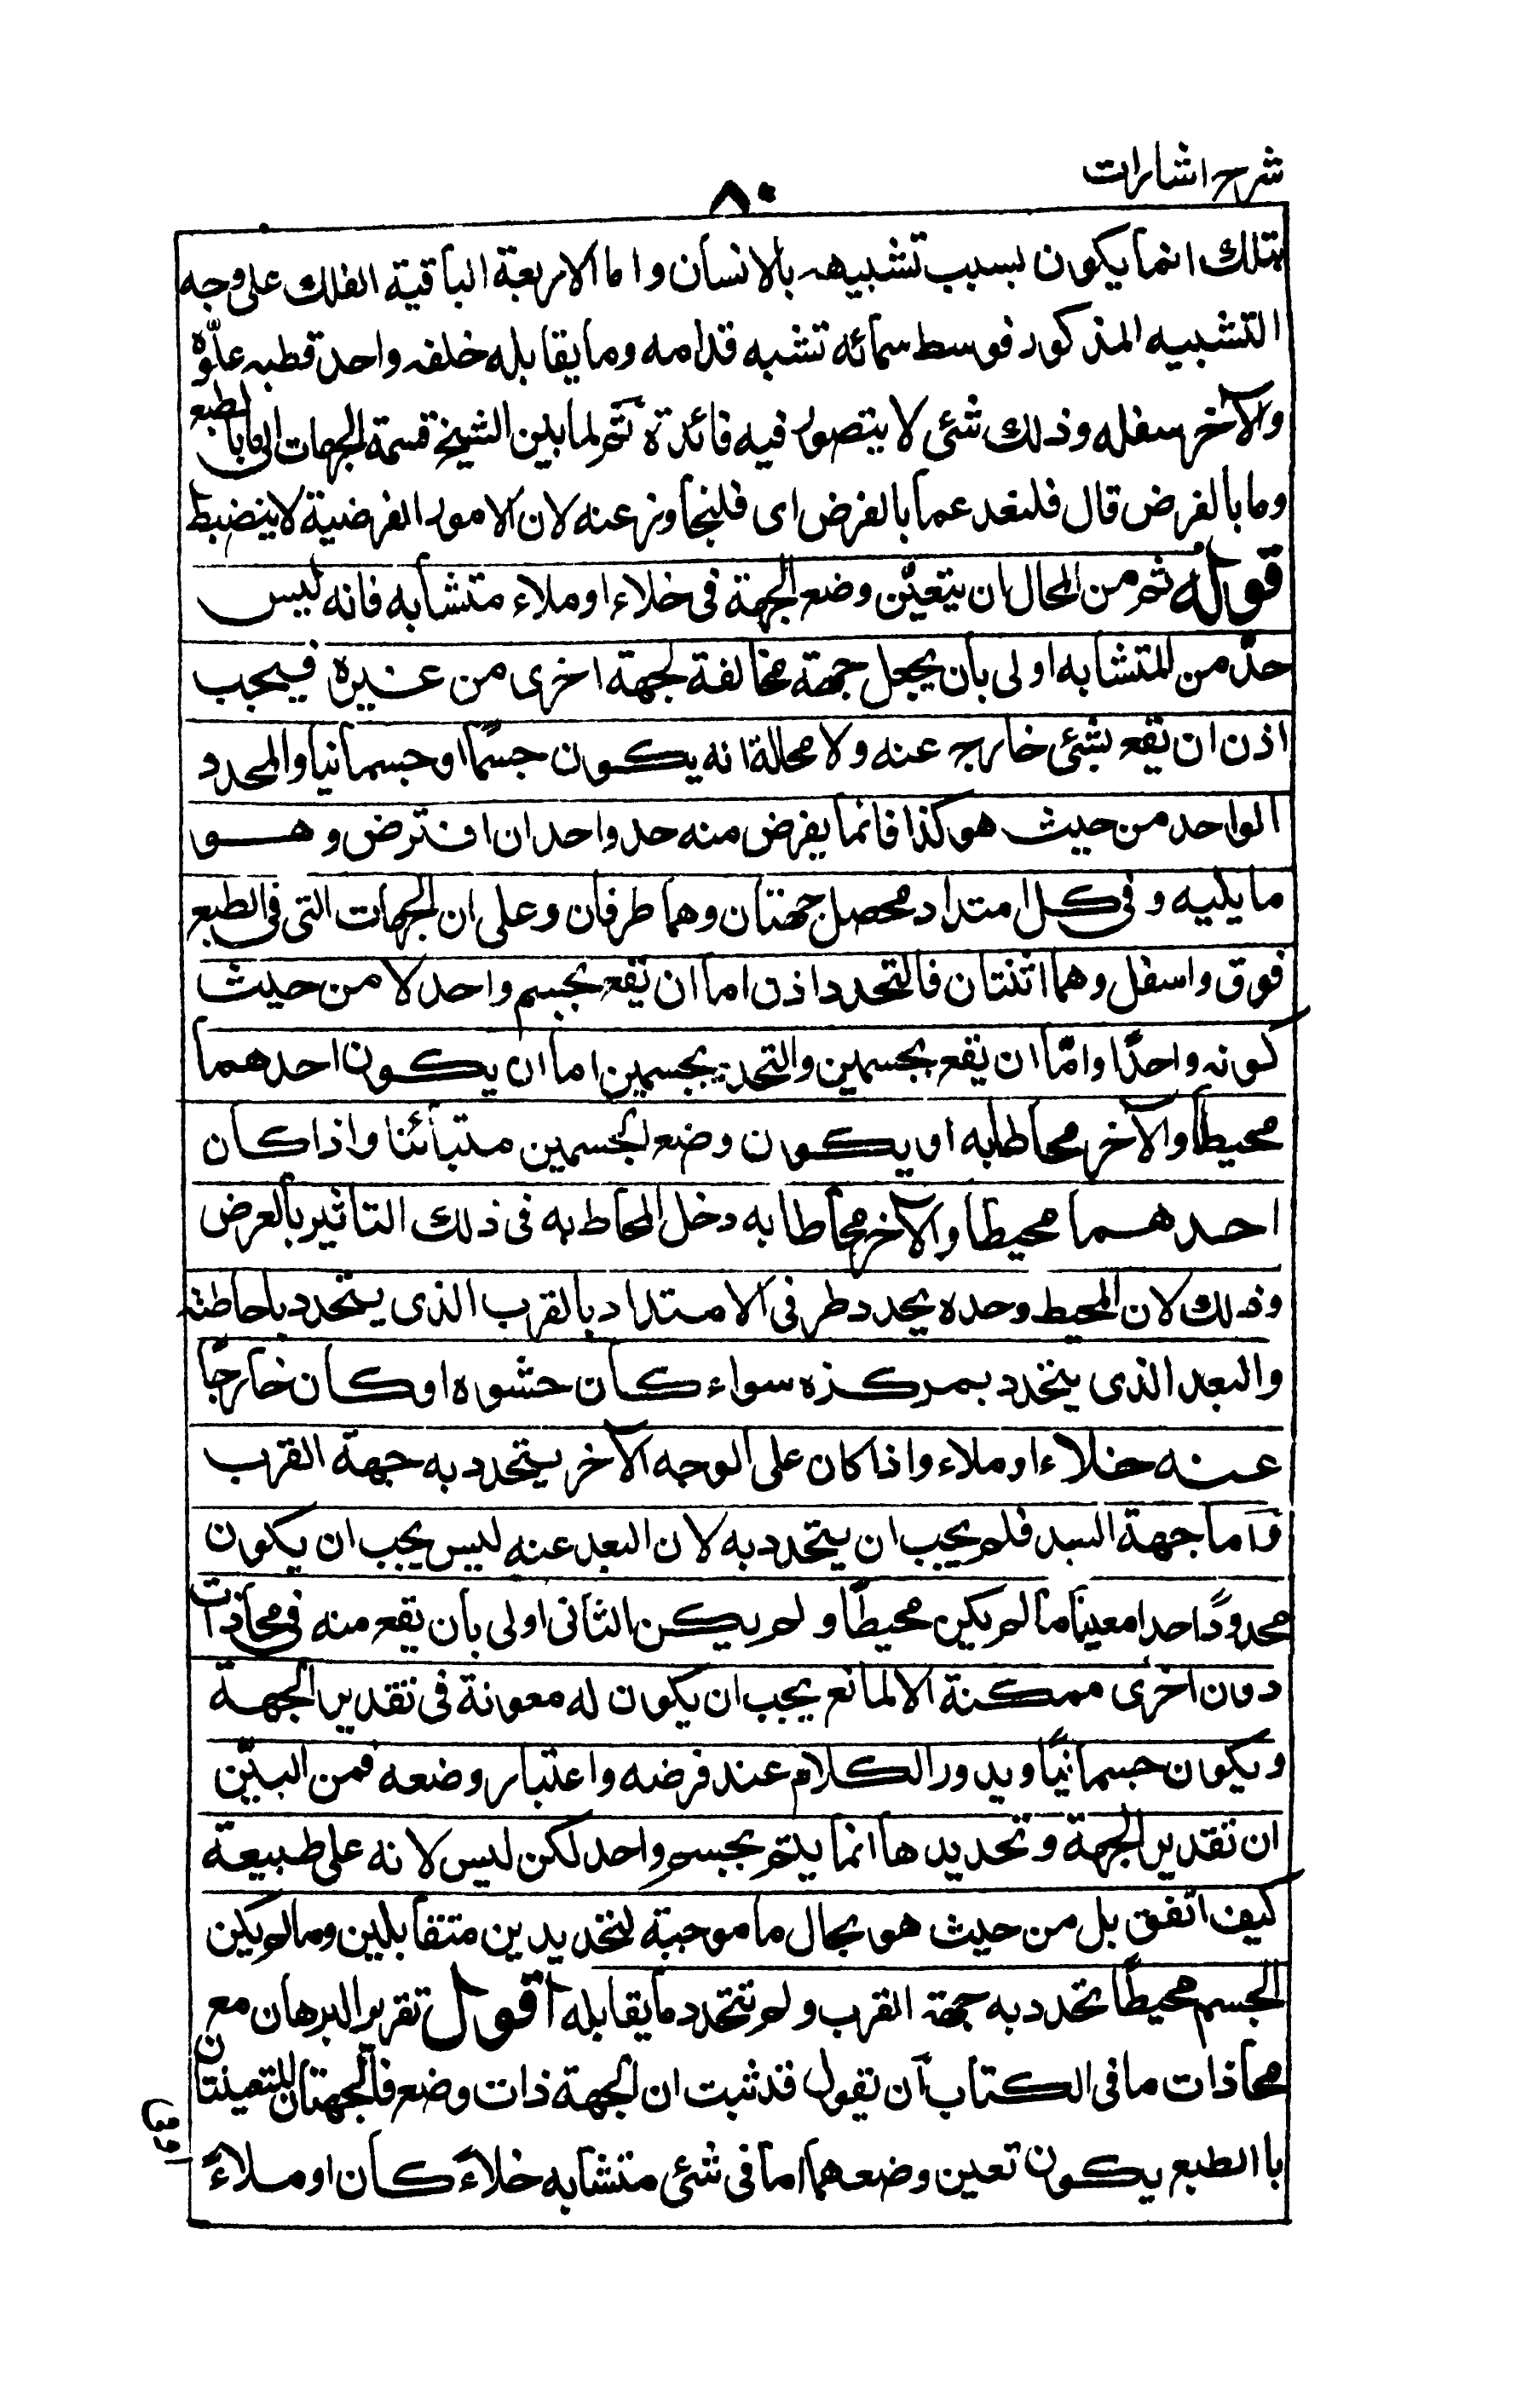 شرح اشارات
٨٠
بتلك انما يكون بسبب تشبيهه بالانسان واما الاربعة الباقية الفلك على وجه
التشبيه المذكور فوسط سمائه تشبه قدامه وما يقابله خلفه واحد قطبيه علوّه
والآخر سفله وذلك شئ لا يتصور فيه فائدة ثم لما بين الشيخ قسمة الجهات الى ما بالطبع
وما بالفرض قال فلنعد عما بالفرض اى فلنجاوز عنه لان الامور الفرضية لا ينضبط
قوله ثم من المحال ان يتعيّن وضع الجهة فى خلاء او ملاء متشابه فانه ليس
حدّ من المتشابه اولى بان يجعل جهة مخالفة لجهة اخرى من غيره فيجب
اذن ان تقع بشئ خارج عنه ولا محالة انه يكون جسمًا او جسمانيا والمحدد
الواحد من حيث هو كذا فانما يفرض منه حد واحد ان افترض وهو
ما يليه وفى كل امتداد محصل جهتان وهما طرفان وعلى ان الجهات التى فى الطبع
فوق واسفل وهما اثنتان فالتحدد اذن اما ان تقع بجسم واحد لا من حيث
كونه واحدًا وامّا ان يقع بجسمين والتحدد بجسمين اما ان يكون احدهما
محيطاً والآخر محاطا به او يكون وضع الجسمين متبائنا واذا كان
احدهما محيطا والآخر محاطا به دخل المحاط به فى ذلك التاثير بالعرض
وذلك لان المحيط وحده يحدد طرفى الامتداد بالقرب الذى يتحدد باحاطته
والبعد الذى يتحدد بمركزه سواء كان حشوه او كان خارجًا
عنه خلاء او ملاء واذا كان على الوجه الآخر يتحدد به جهة القرب
واما جهة البعد فلم يجب ان يتحدد به لان البعد عنه ليس يجب ان يكون
محدودًا حدا معينا ما لم يكن محيطًا ولم يكن الثانى اولى بان يقع منه فى محاذات
دون اخرى ممكنة الا لمانع يجب ان يكون له معونة فى تقدير الجهة
ويكون جسمانيًا ويدور الكلام عند فرضه واعتبار وضعه فمن البيّن
ان تقدير الجهة وتحديدها انما يتم بجسم واحد لكن ليس لانه على طبيعة
كيف اتفق بل من حيث هو بحال ما موجبة لتحديدين متقابلين وما لم يكن
الجسم محيطًا تحدد به جهة القرب ولم تتحدد ما يقابله اقول تقرير البرهان مع
محاذات ما فى الكتاب ان نقول قد ثبت ان الجهة ذات وضع فالجهتان المتعينتان
باالطبع يكون تعين وضعهما اما فى شئ متشابه خلاءً كان او ملاءً